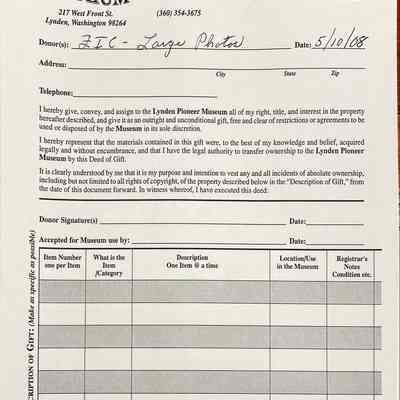 217 West Front St.
Lynden, Washington 98264
(360) 354-3675
Donor(s): FIC - Large Photos Date: 5/10/08
Address:
City State Zip
Telephone:
I hereby give, convey, and assign to the Lynden Pioneer Museum all of my right, title, and interest in the property
hereafter described, and give it as an outright and unconditional gift, free and clear of restrictions or agreements to be
used or disposed of by the Museum in its sole discretion.
I hereby represent that the materials contained in this gift were, to the best of my knowledge and belief, acquired
legally and without encumbrance, and that I have the legal authority to transfer ownership to the Lynden Pioneer
Museum by this Deed of Gift.
It is clearly understood by me that it is my purpose and intention to vest any and all incidents of absolute ownership,
including but not limited to all rights of copyright, of the property described below in the "Description of Gift," from
the date of this document forward. In witness whereof, I have executed this deed:
Donor Signature(s) Date:
Accepted for Museum use by: Date:
Item Number
one per Item
What is the
Item
/Category
Description
One Item @ a time
Location/Use
in the Museum
Registrar's
Notes
Condition etc.
CRIPTION OF GIFT: (Make as specific as possible)